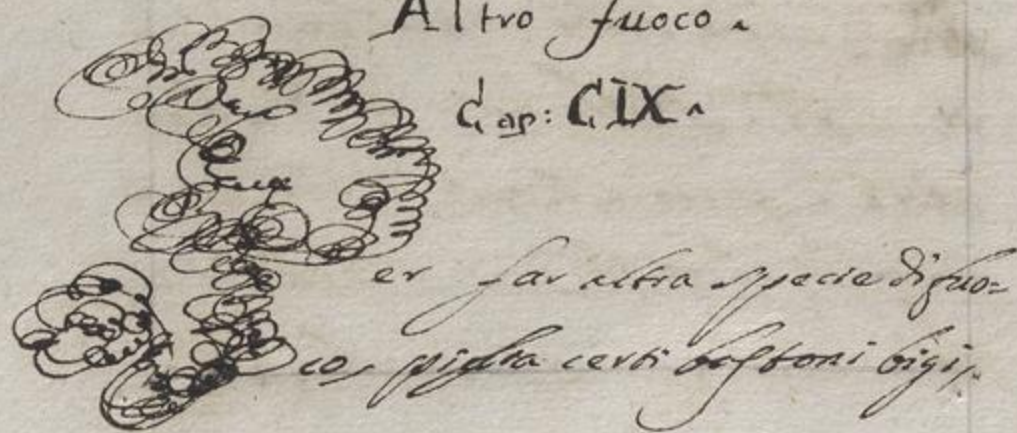 Altro fuoco.
Cap: CIX.
Per far altra specie di fuo=
co, piglia certi bastoni bigi,